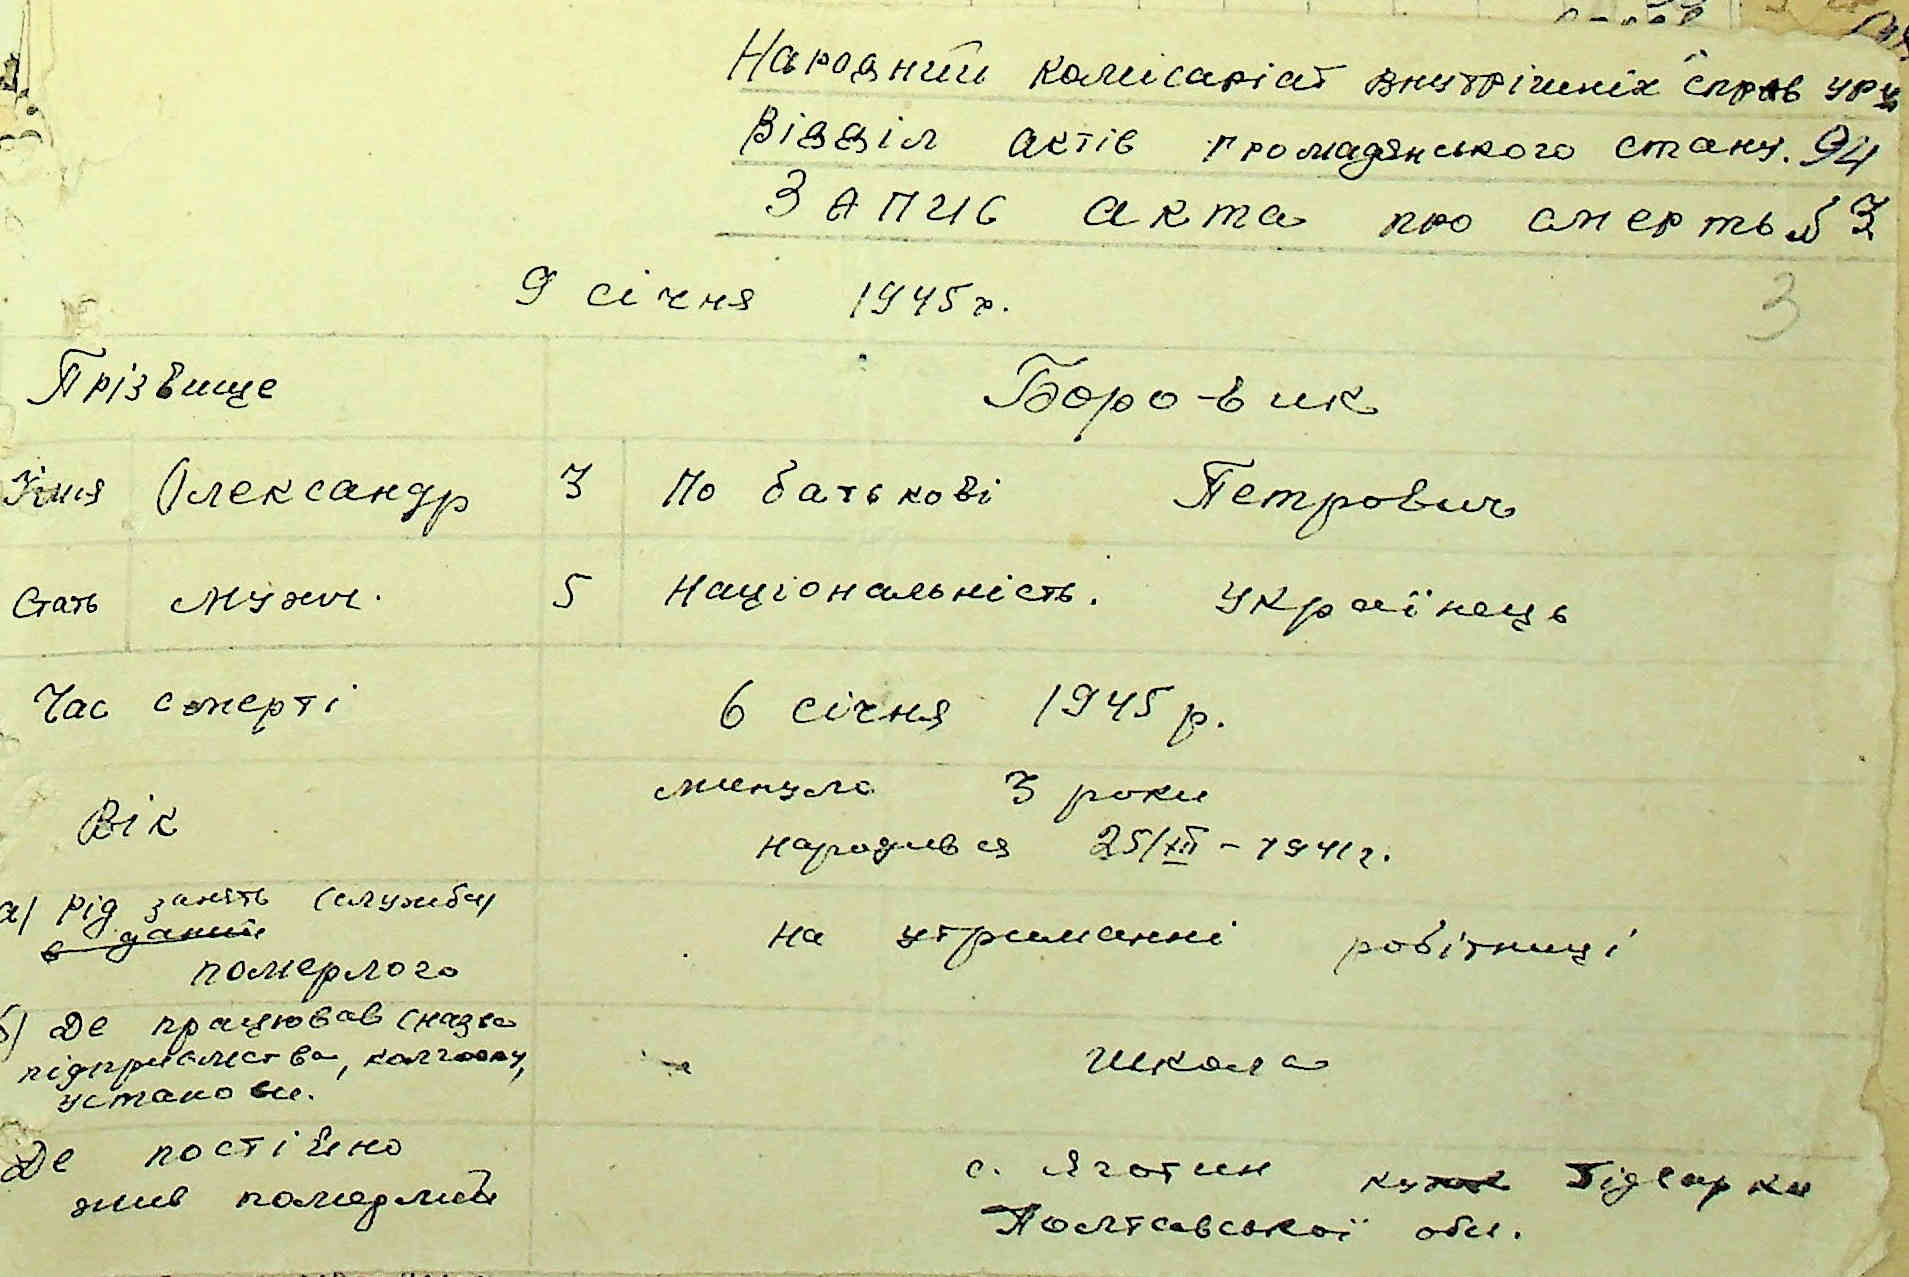 Народний комісаріат внутрішніх справ УРСР
Відділ актів громадянського стану. 94
Запис акта про смерть № 3
3
9 січня 1945 р.
Прізвище Боровик
Ім'я Олександр 3 По батькові Петрович
Стать мужч. 5 Національність. Українець
Час смерті 6 січня 1945 р.
Вік минуло 3 роки
народився 25/XII – 1941 р.
а/ рід занять (служби)
в даний
померлого на утриманні робітниці
б/ Де працював (назва
підприємства, колгоспу,
установи. школа
Де постійно
жив померлий с. Яготин куток Підварки
Полтавської обл.